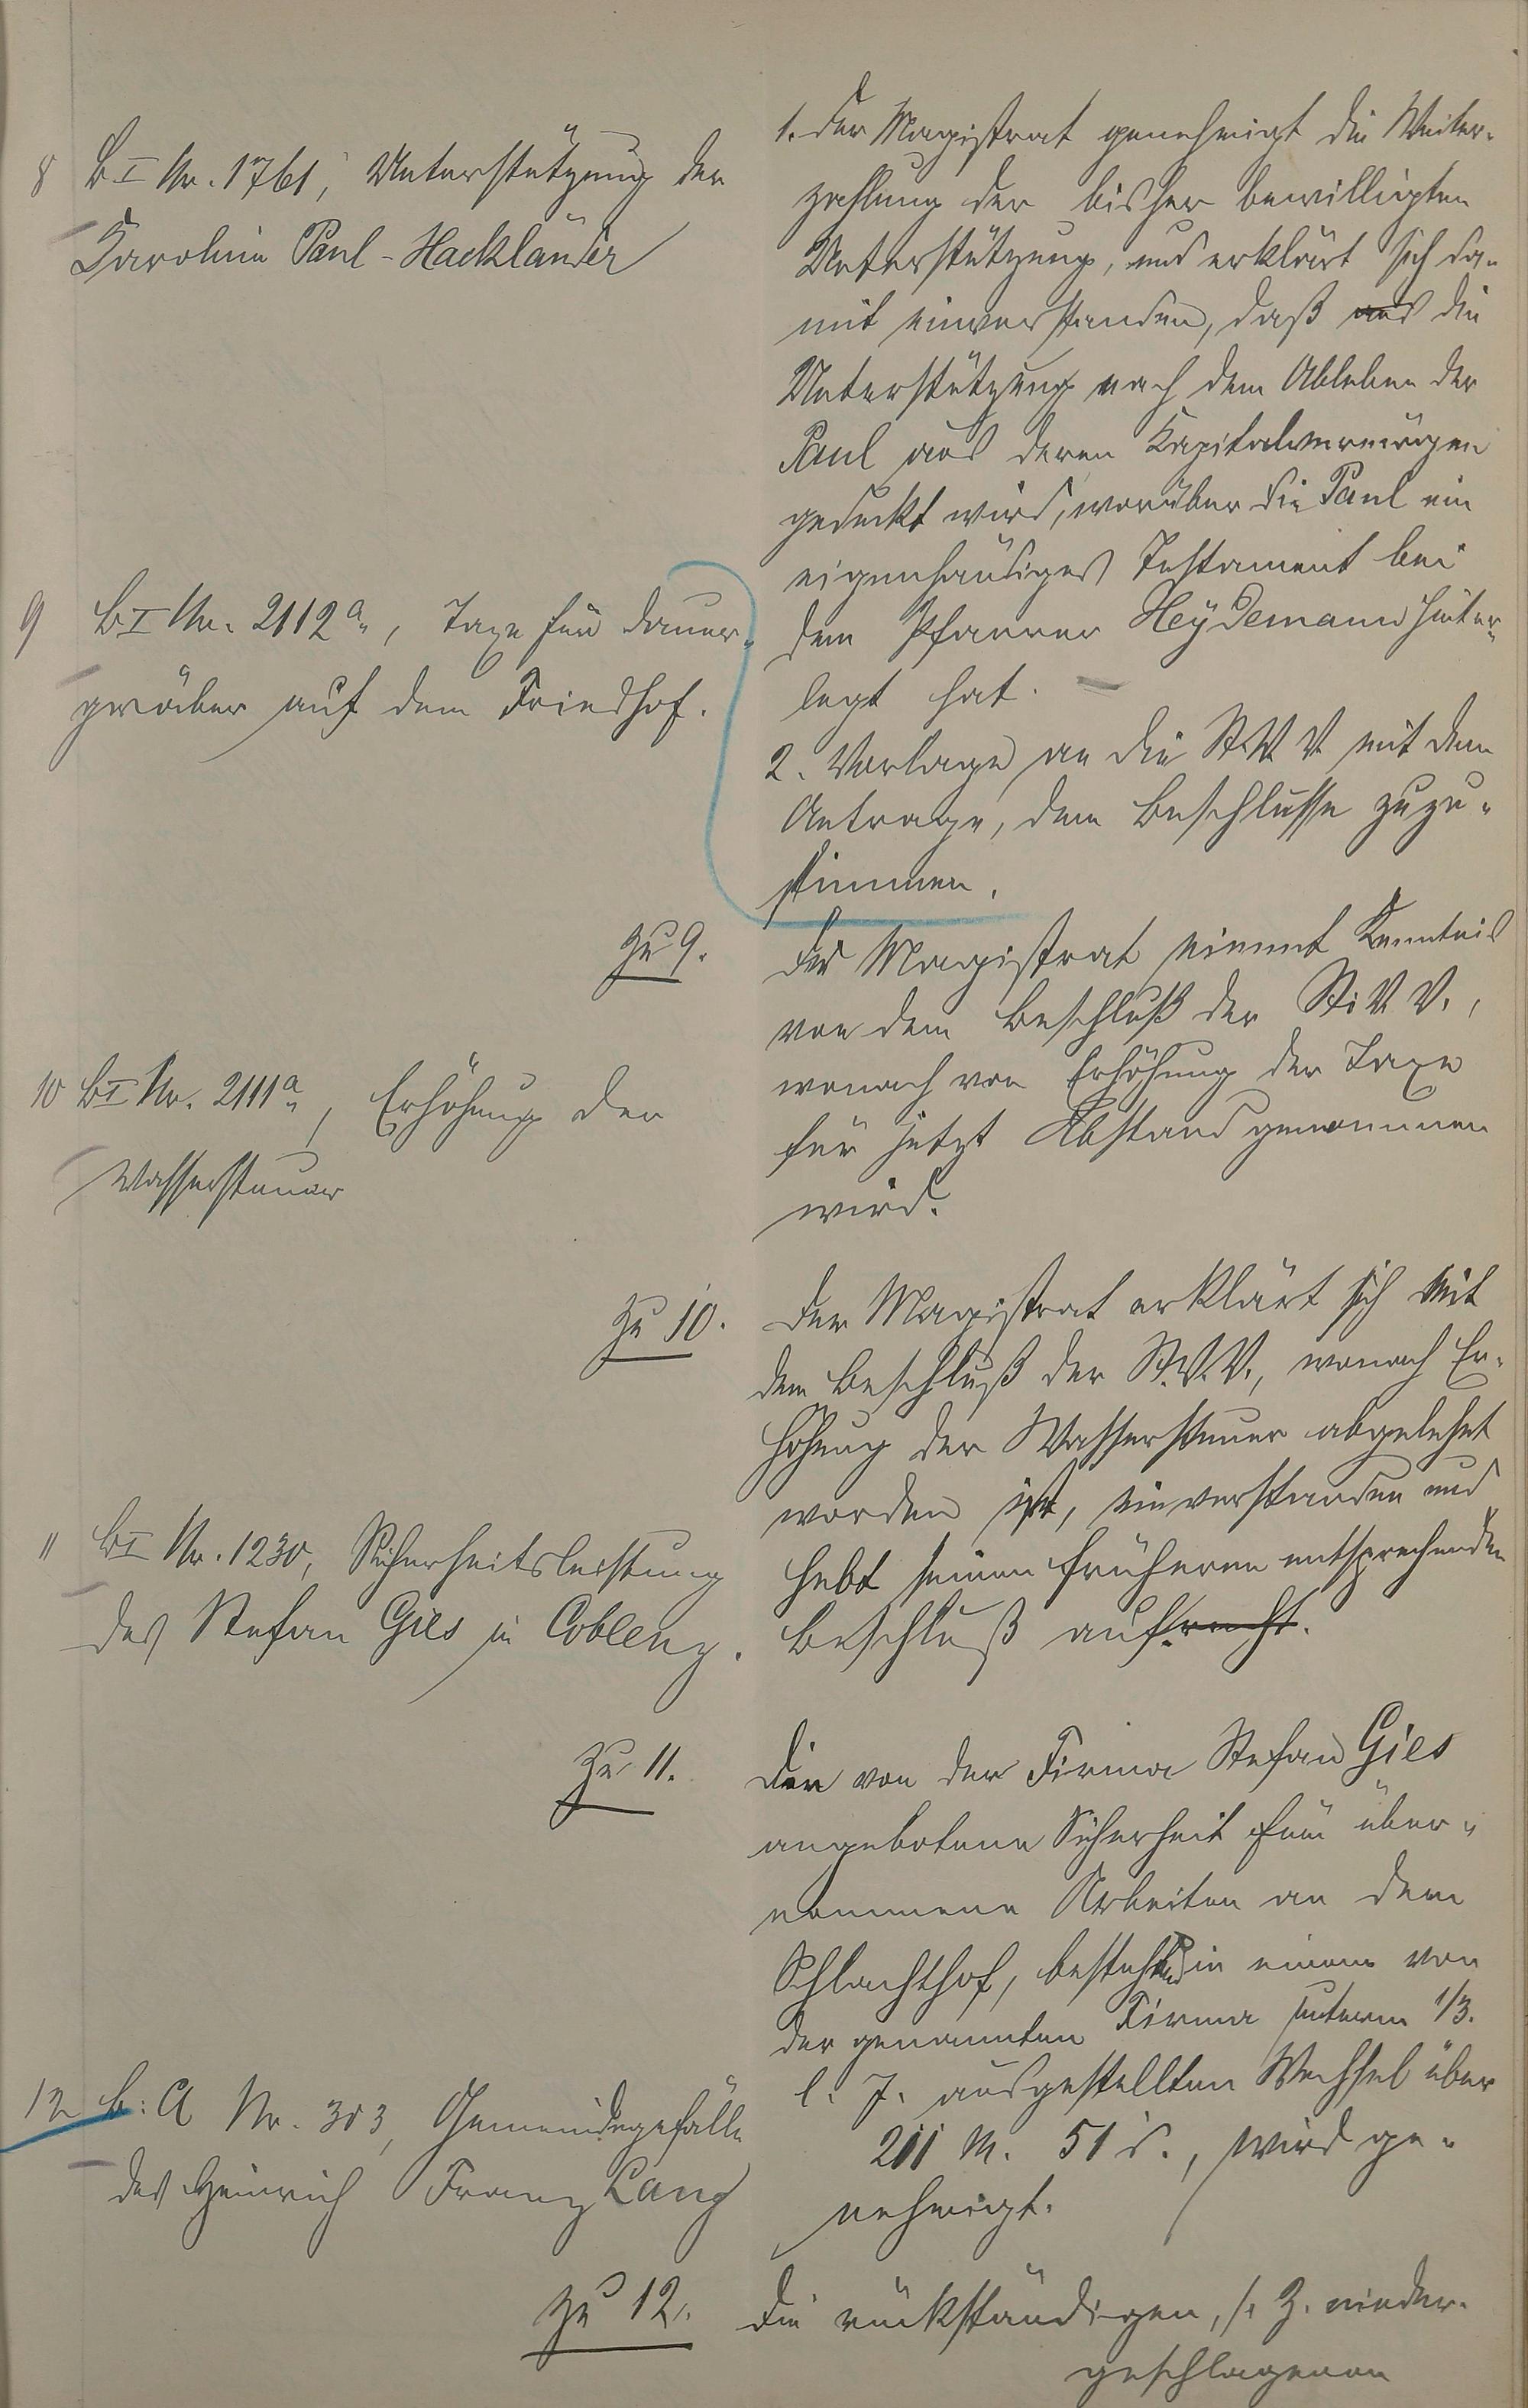 8 B I Nr. 1761, Unterstützung der
Karoline Paul-Hackländer
1. Der Magistrat genehmigt die Weiter-
zahlung der bisher bewilligten
Unterstützung, und erklärt sich da-
mit einverstanden, daß aus die
Unterstützung nach dem Ableben der
Paul aus deren Kapitalvermögen
gedeckt wird, worüber die Paul ein
eigenhändiges Testament bei
dem Pfarrer Heydemann hinter-
legt hat.
2. Vorlage an die St.V.V. mit dem
Antrage, dem Beschlusse zuzu-
stimmen.
9 B I Nr. 2112a, Taxe für Dauer-
gräber auf dem Friedhof.
zu 9. Der Magistrat nimmt Kenntnis
von dem Beschluß der St.V.V.,
wonach von Erhöhung der Taxe
für jetzt Abstand genommen
wird.
10 B I Nr. 2111a, Erhöhung der
Wassersteuer
zu 10. Der Magistrat erklärt sich mit
dem Beschluß der St.V.V., wonach Er-
höhung der Wassersteuer abgelehnt
worden ist, einverstanden und
hebt seinen früheren entsprechenden
Beschluß auf.recht.
11 B I Nr. 1230, Sicherheitsleistung
des Stefan Gies in Coblenz.
zu 11. Die von der Firma Stefan Gies
angebotene Sicherheit für über-
nommene Arbeiten an dem
Schlachthof, bestehend in einem von
der genannten Firma unterm 1/3.
l. J. ausgestellten Wechsel über
211 M. 51 d., wird ge-
nehmigt.
12 B. A Nr. 303, Gemeindegefälle
des Heinrich Franz Lang
zu 12. Die rückständigen, s. Z. nieder-
geschlagenen